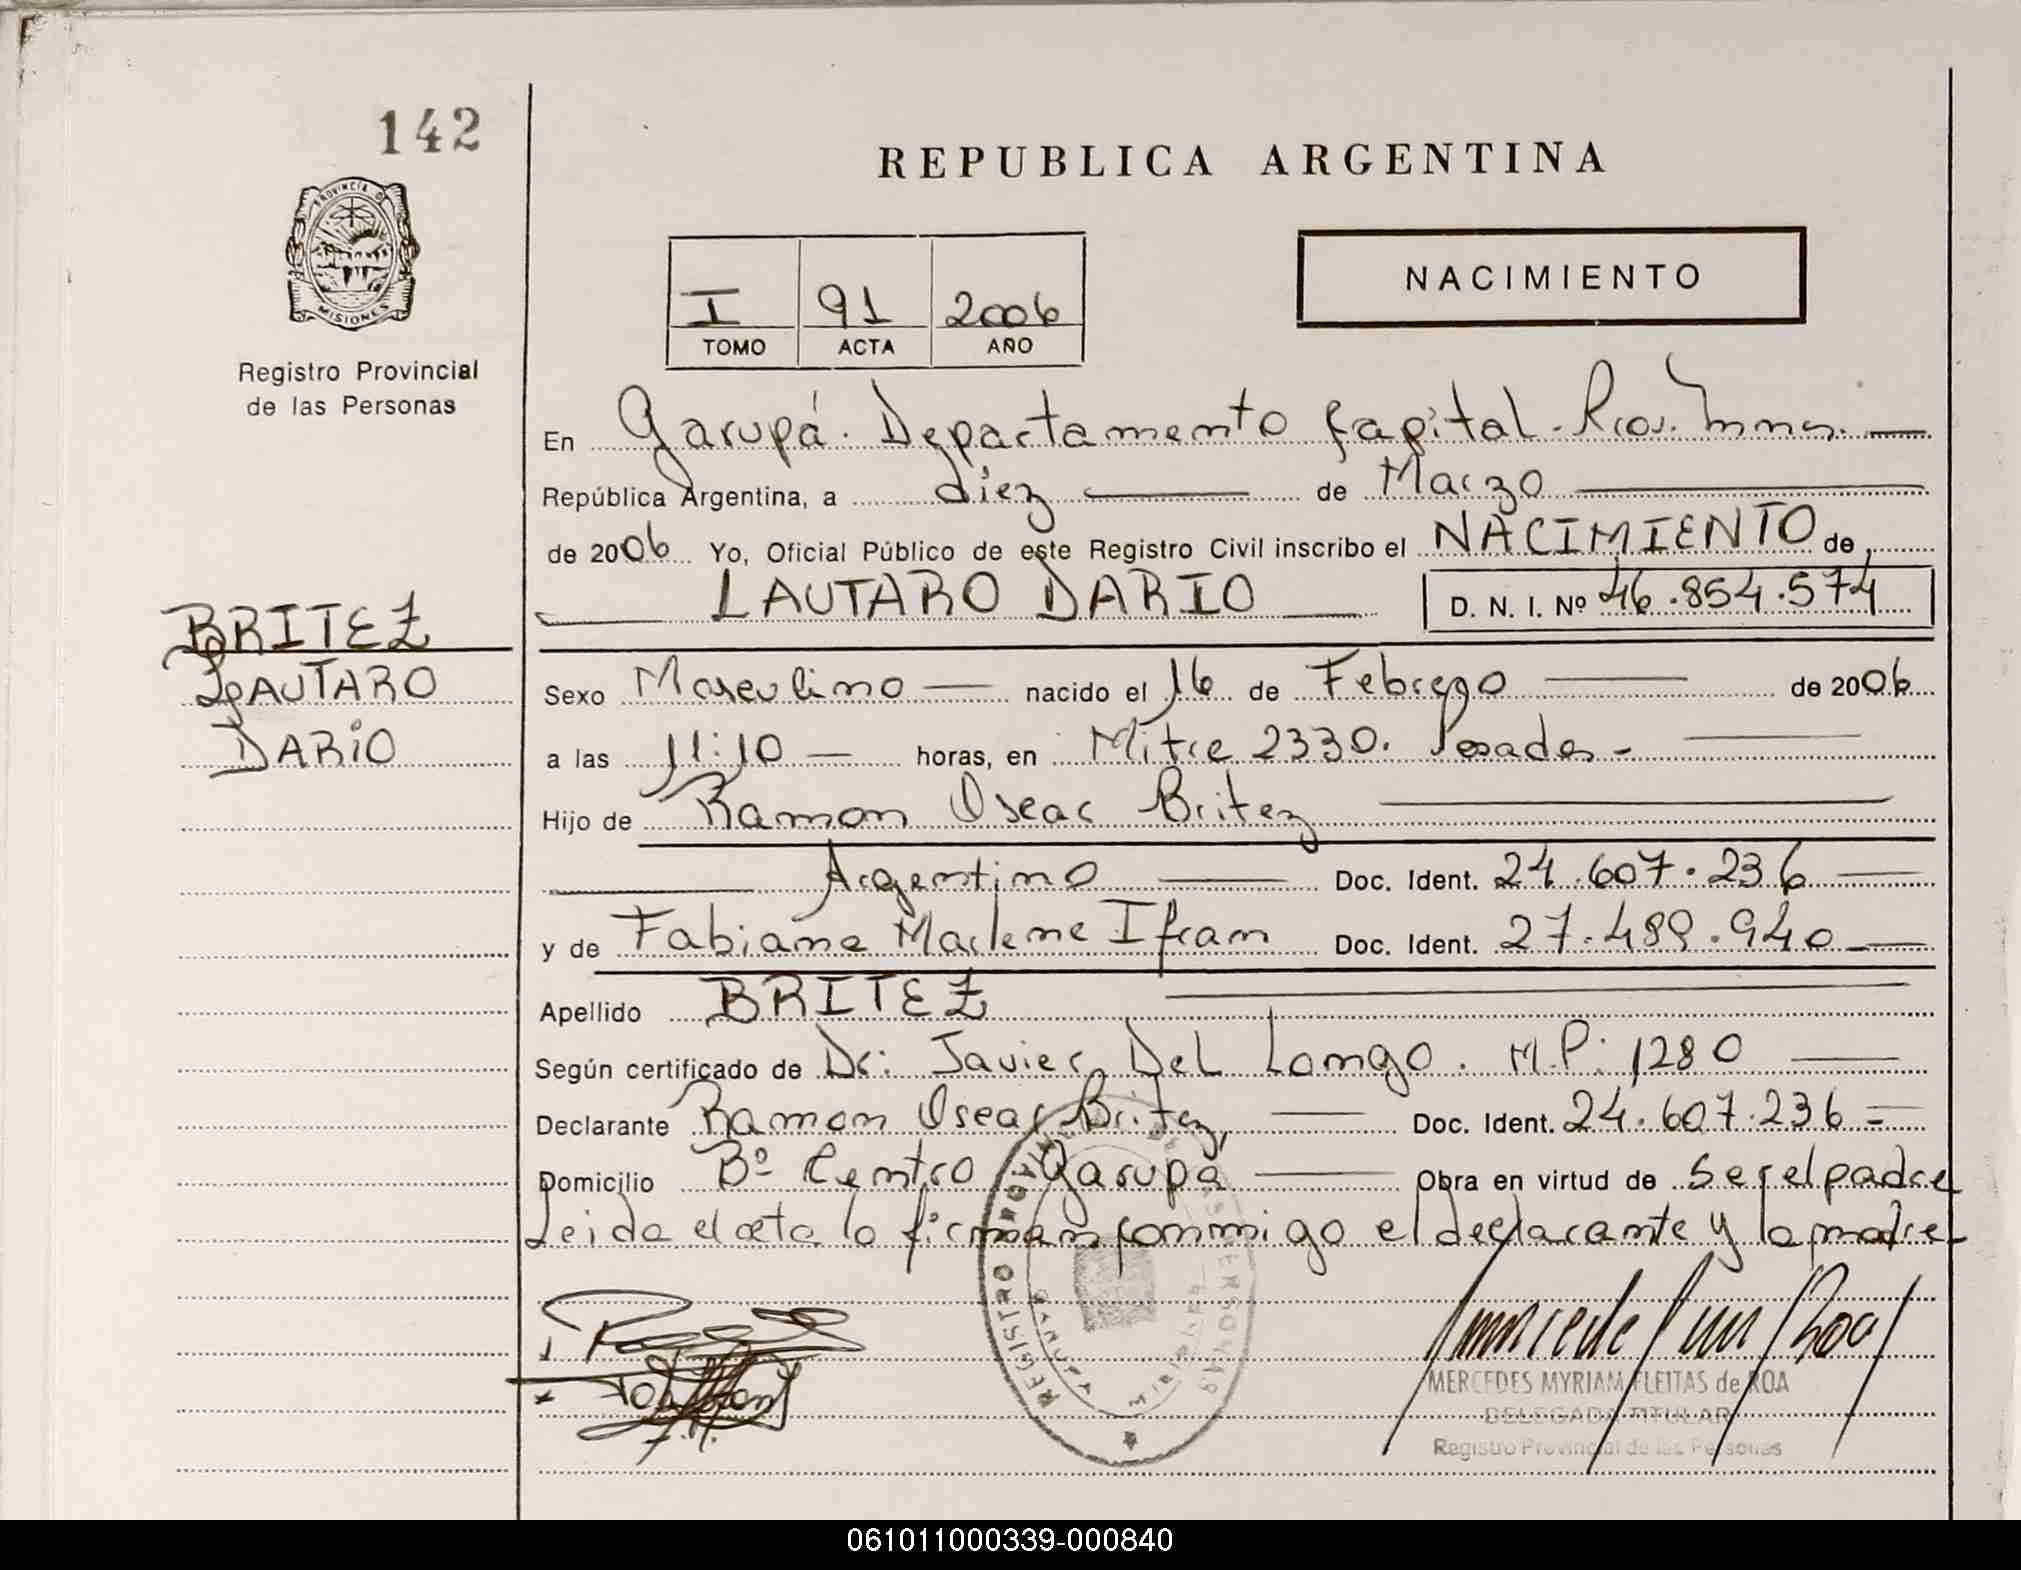 142
REPUBLICA ARGENTINA
PROVINCIA D
MISIONES
Registro Provincial
de las Personas
I 91 2006
TOMO ACTA AÑO
NACIMIENTO
En Garupá. Departamento Capital. Prov. Mnes.
República Argentina, a diez de Marzo
de 2006 Yo, Oficial Público de este Registro Civil inscribo el NACIMIENTO de
LAUTARO DARIO D. N. I. Nº 46.854.574
BRITEZ
LAUTARO
DARIO
Sexo Masculino nacido el 16 de Febrero de 2006
a las 11:10 horas, en Mitre 2330. Posadas
Hijo de Ramon Oscar Britez
Argentino Doc. Ident. 24.607.236
y de Fabiana Marlene Ifran Doc. Ident. 27.489.940
Apellido BRITEZ
Según certificado de Dr: Javier Del Longo. M.P: 1280
Declarante Ramon Oscar Britez, Doc. Ident. 24.607.236
Domicilio Bº Centro Garupá Obra en virtud de ser el padre
Leida el acta la firman conmigo el declarante y la madre
REGISTRO
GARUPA
MERCEDES MYRIAM FLEITAS de ROA
DELEGADA TITULAR
Registro Provincial de las Personas
061011000339-000840